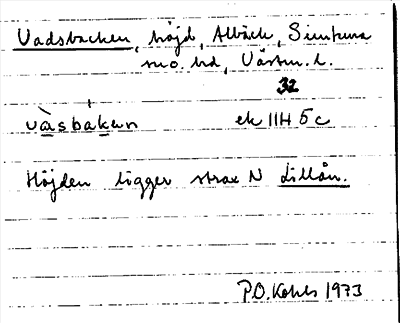 Vadsbacken, höjd, Albäck, Simtuna
sno. hd, Västm. l.
32
vàsbàken ek 11H 5c
Höjden ligger strax N Lillån.
P.O. Kohls 1973